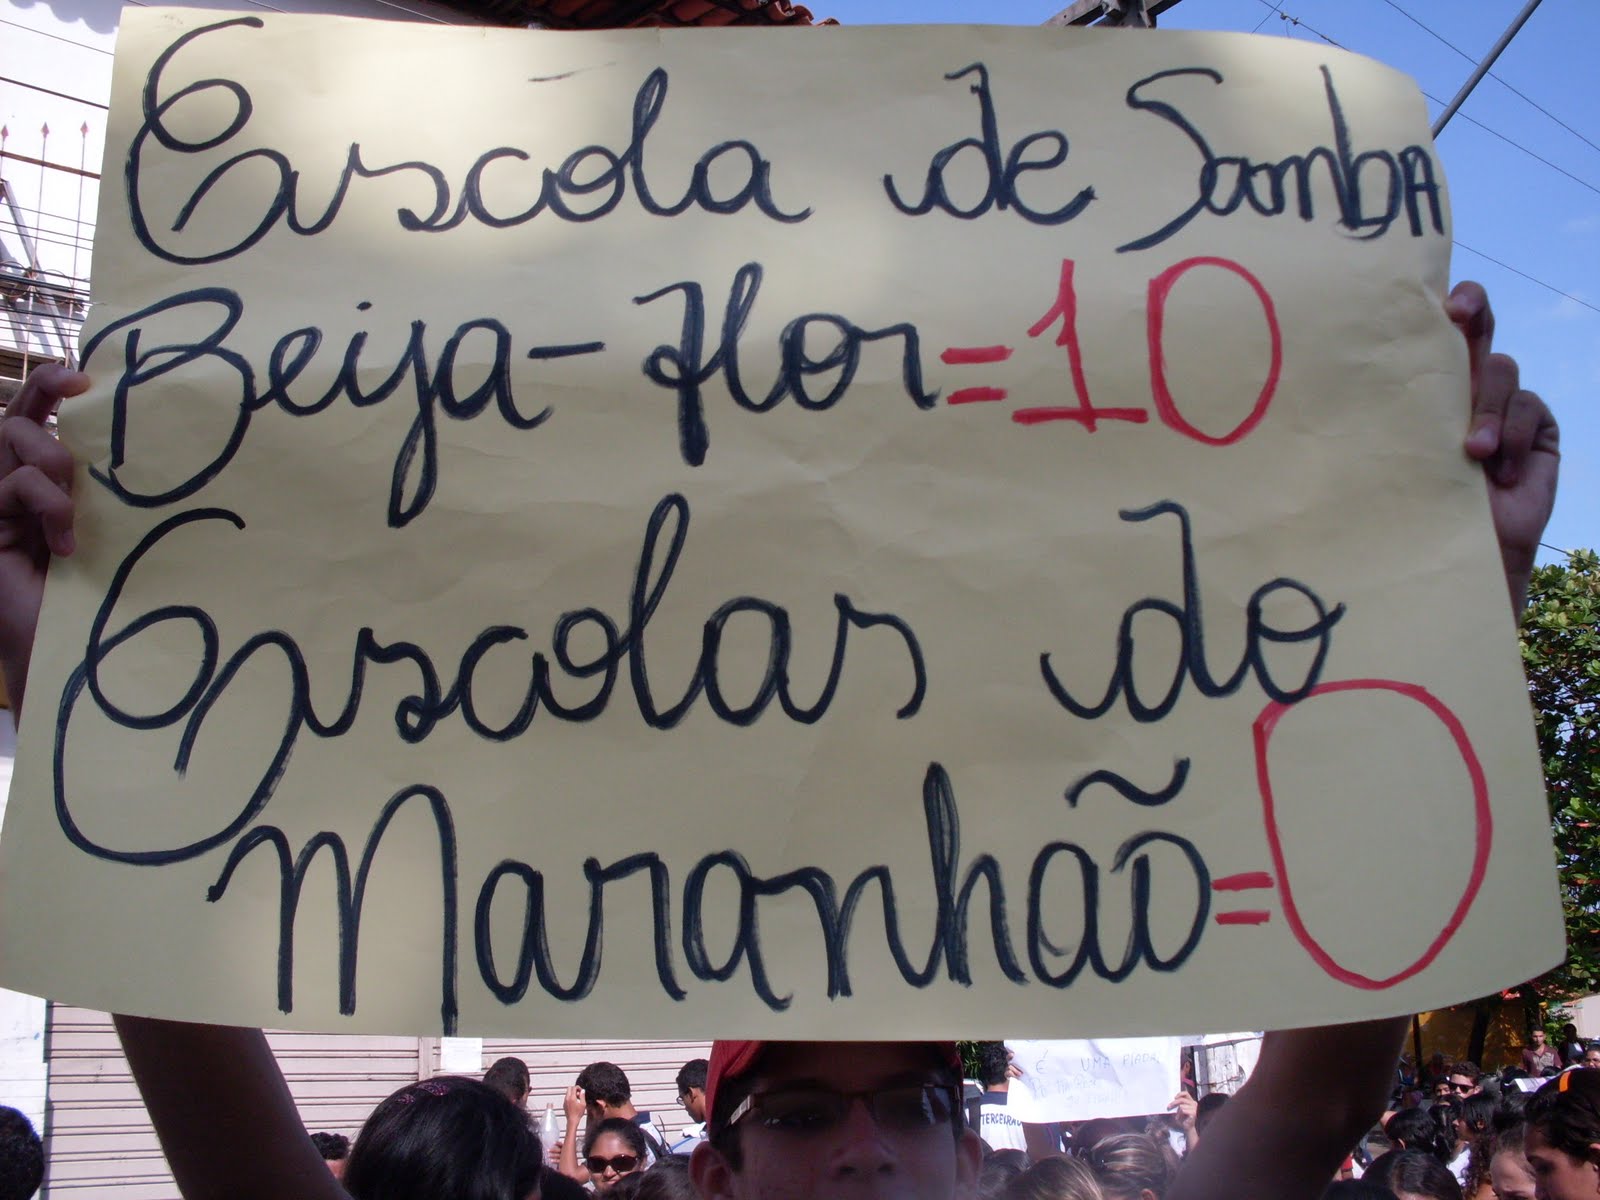 Escola de Samba
Beija-flor=10
Escolas do
Maranhão=0
É UMA PIADA
TERCEIRÃO